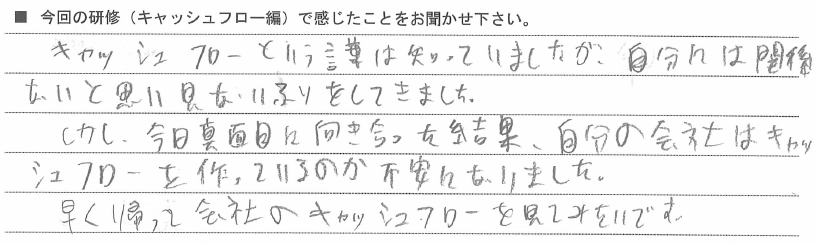 ■ 今回の研修（キャッシュフロー編）で感じたことをお聞かせ下さい。
キャッシュフローという言葉は知っていましたが、自分には関係
ないと思い見ないふりをしてきました。
しかし、今日真面目に向き合った結果、自分の会社はキャッ
シュフローを作っているのか不安になりました。
早く帰って会社のキャッシュフローを見てみたいです。